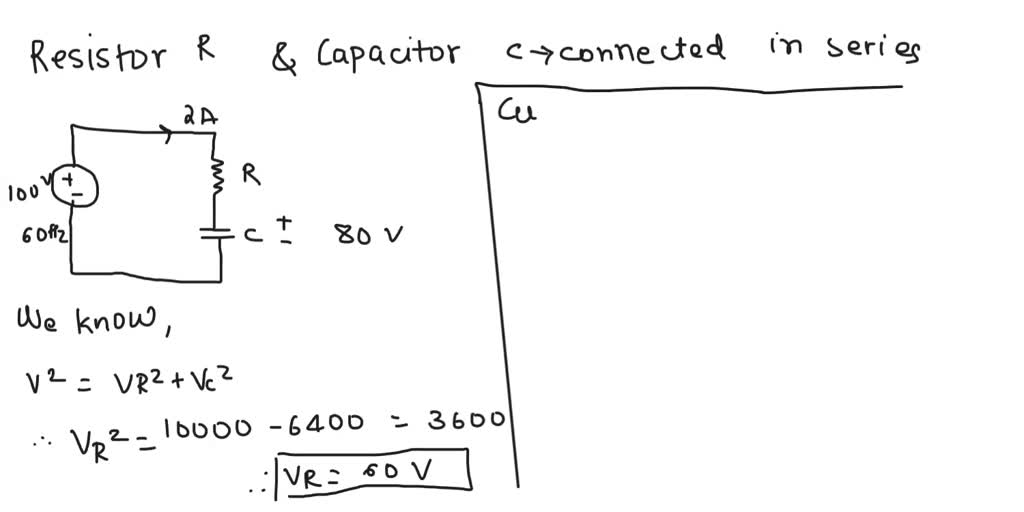 Resistor R & Capacitor C → connected in series
2A
100V
+
-
60Hz
R
C + - 80 V
We know,
V² = VR² + Vc²
∴ VR² = 10000 - 6400 = 3600
∴ VR = 60 V
Cu